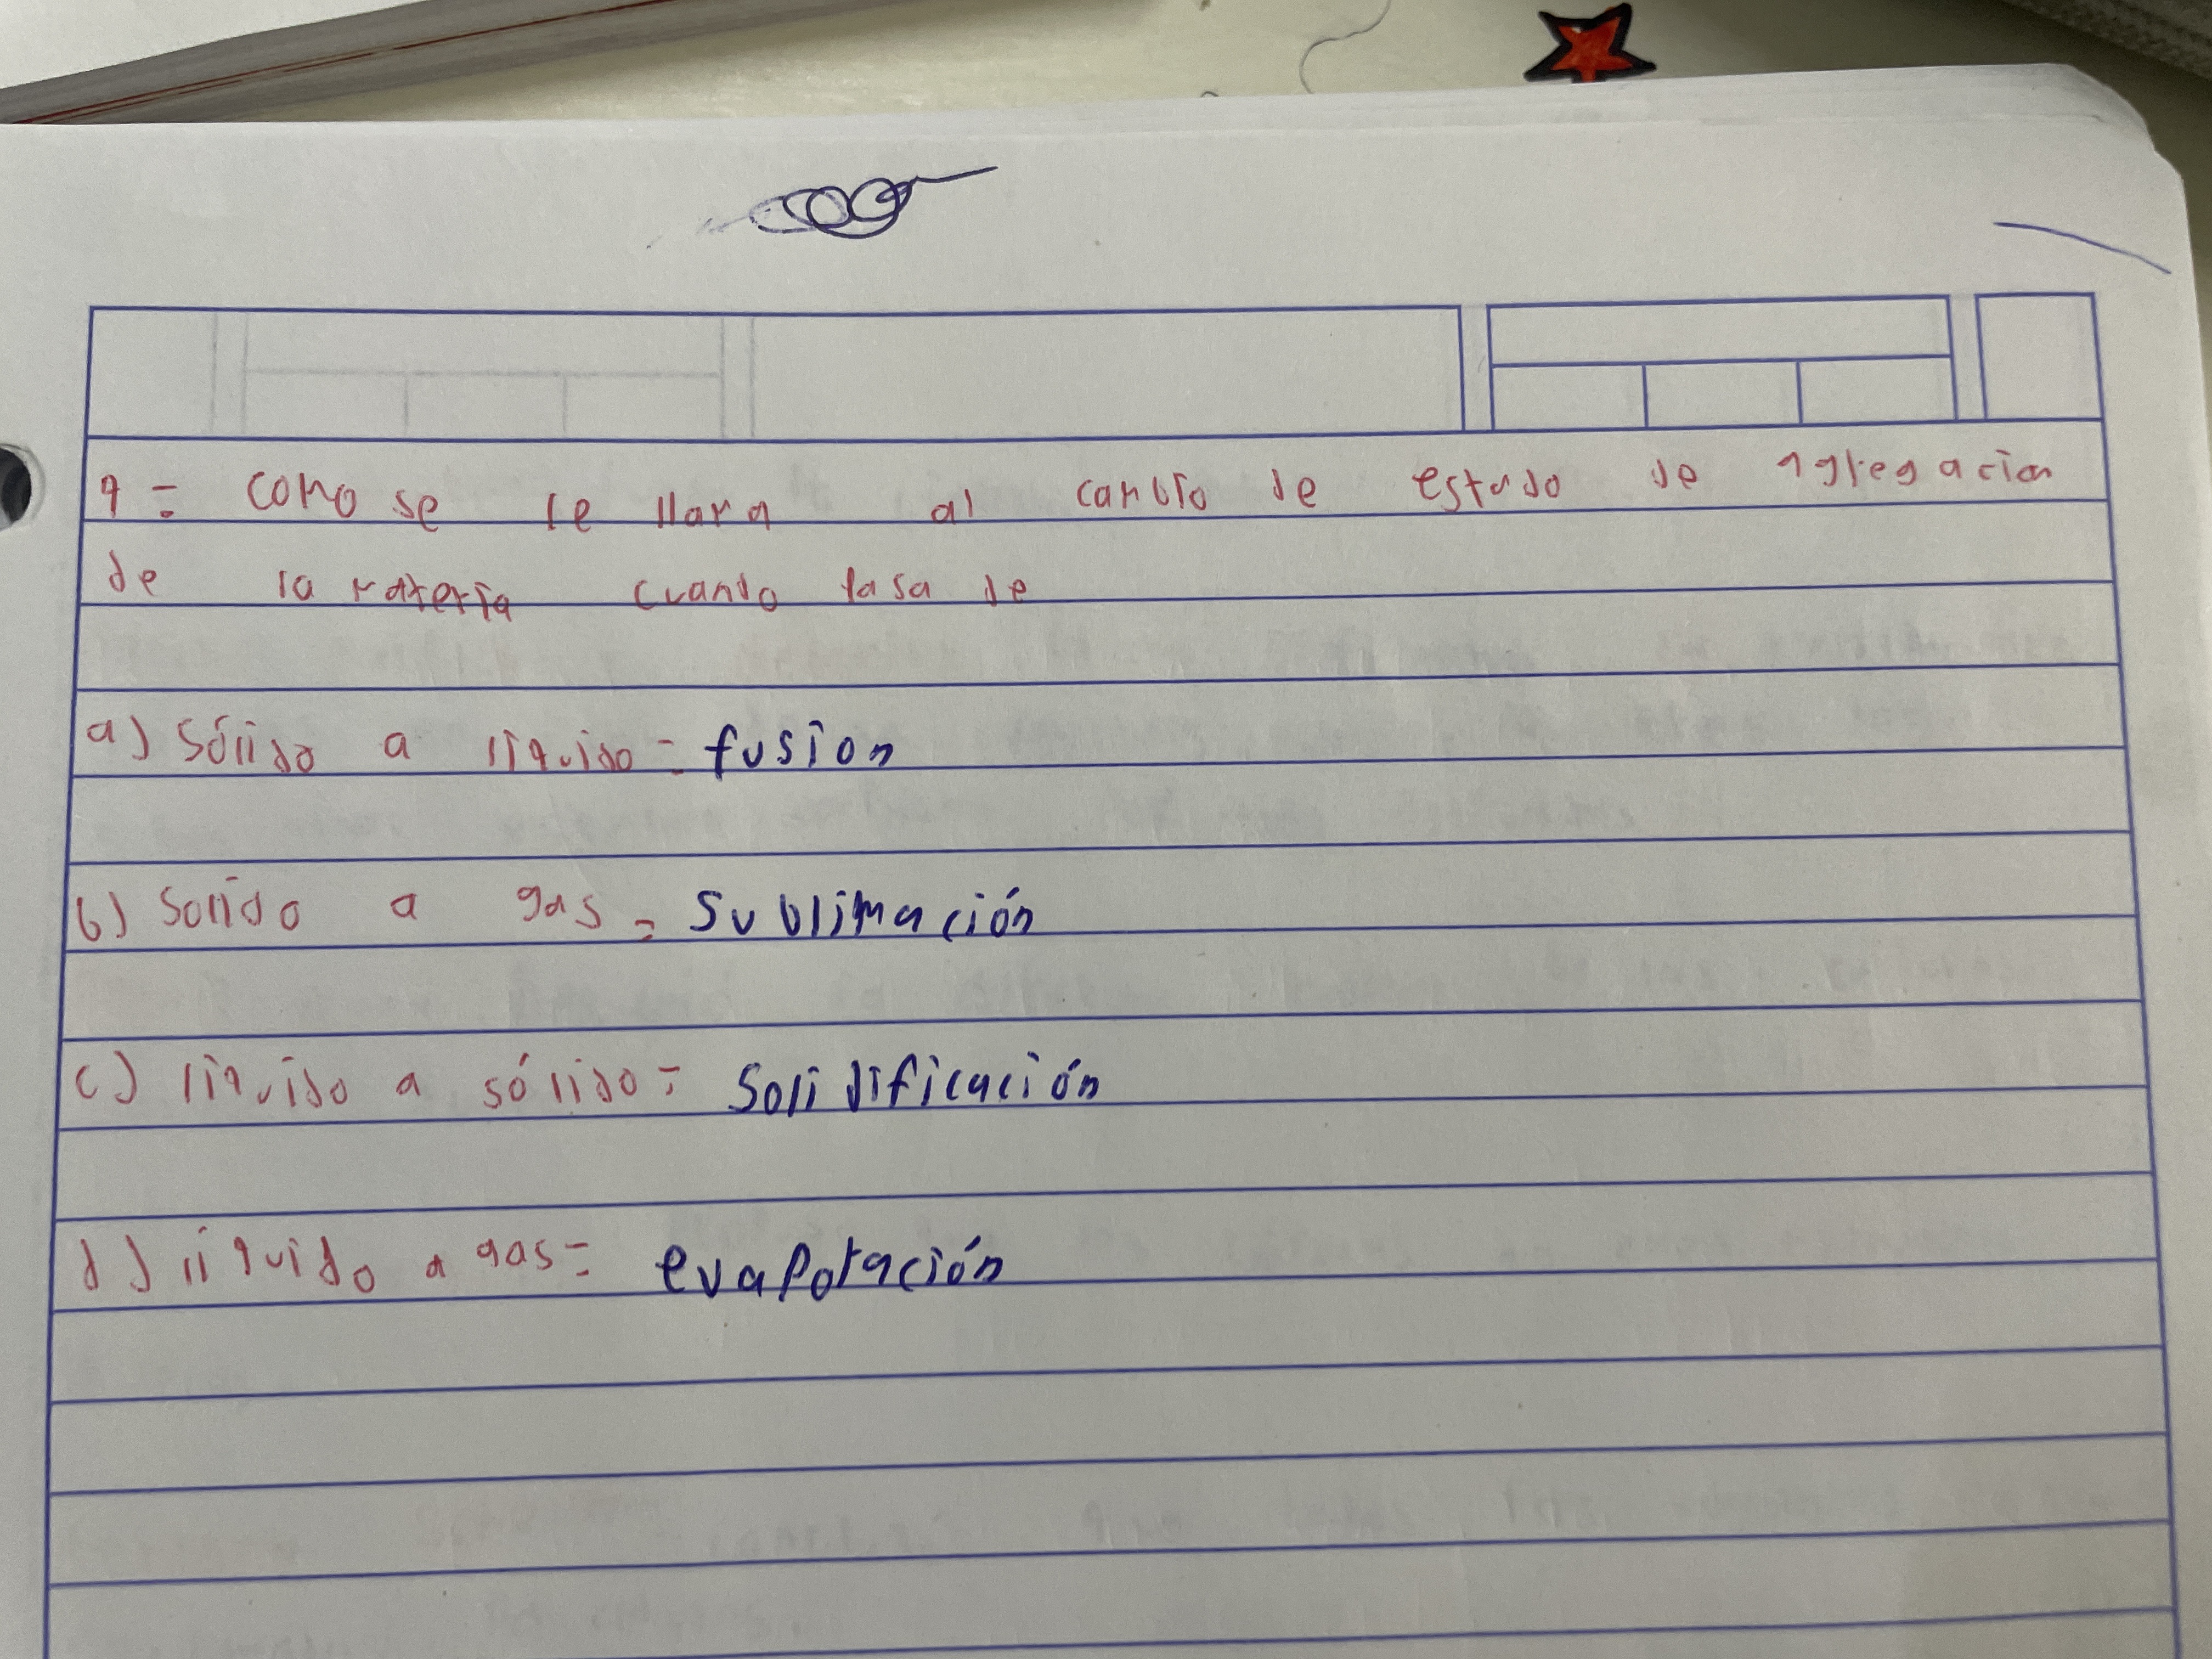 9= como se le llama al cambio de estado de agregacion
de la materia cuando pasa de
a) Sólido a líquido= fusion
b) Solido a gas= Sublimación
c) líquido a sólido= Solidificación
d) líquido a gas= evaporación